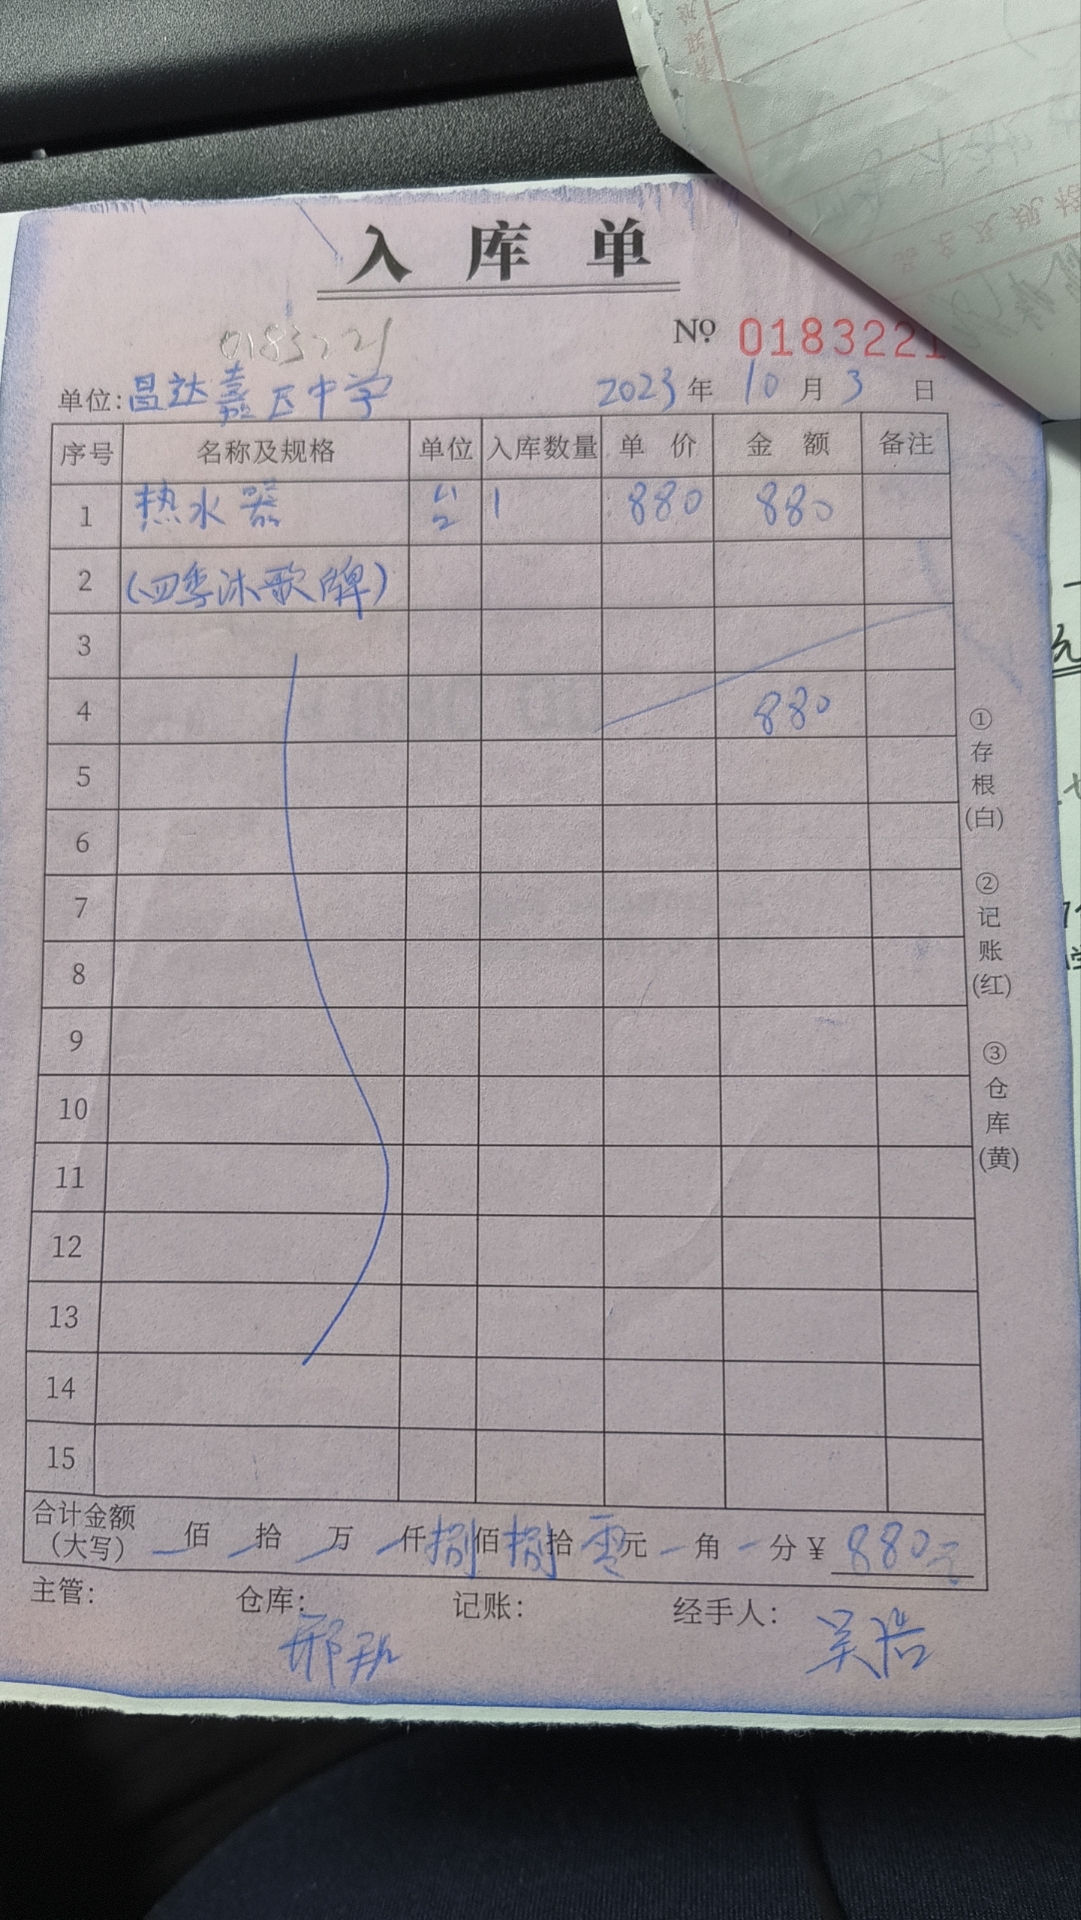 入库单
0183221
№ 0183221
单位:昌达嘉臣中学 2023年10月3日
序号 名称及规格 单位 入库数量 单价 金额 备注
1 热水器 台 1 880 880
2 (四季沐歌牌)
3
4 880
5
6
7
8
9
10
11
12
13
14
15
合计金额(大写) 佰 拾 万 仟捌佰捌拾零元 角 分¥ 880元
主管: 仓库: 记账: 经手人:
吴浩
①存根(白)
②记账(红)
③仓库(黄)